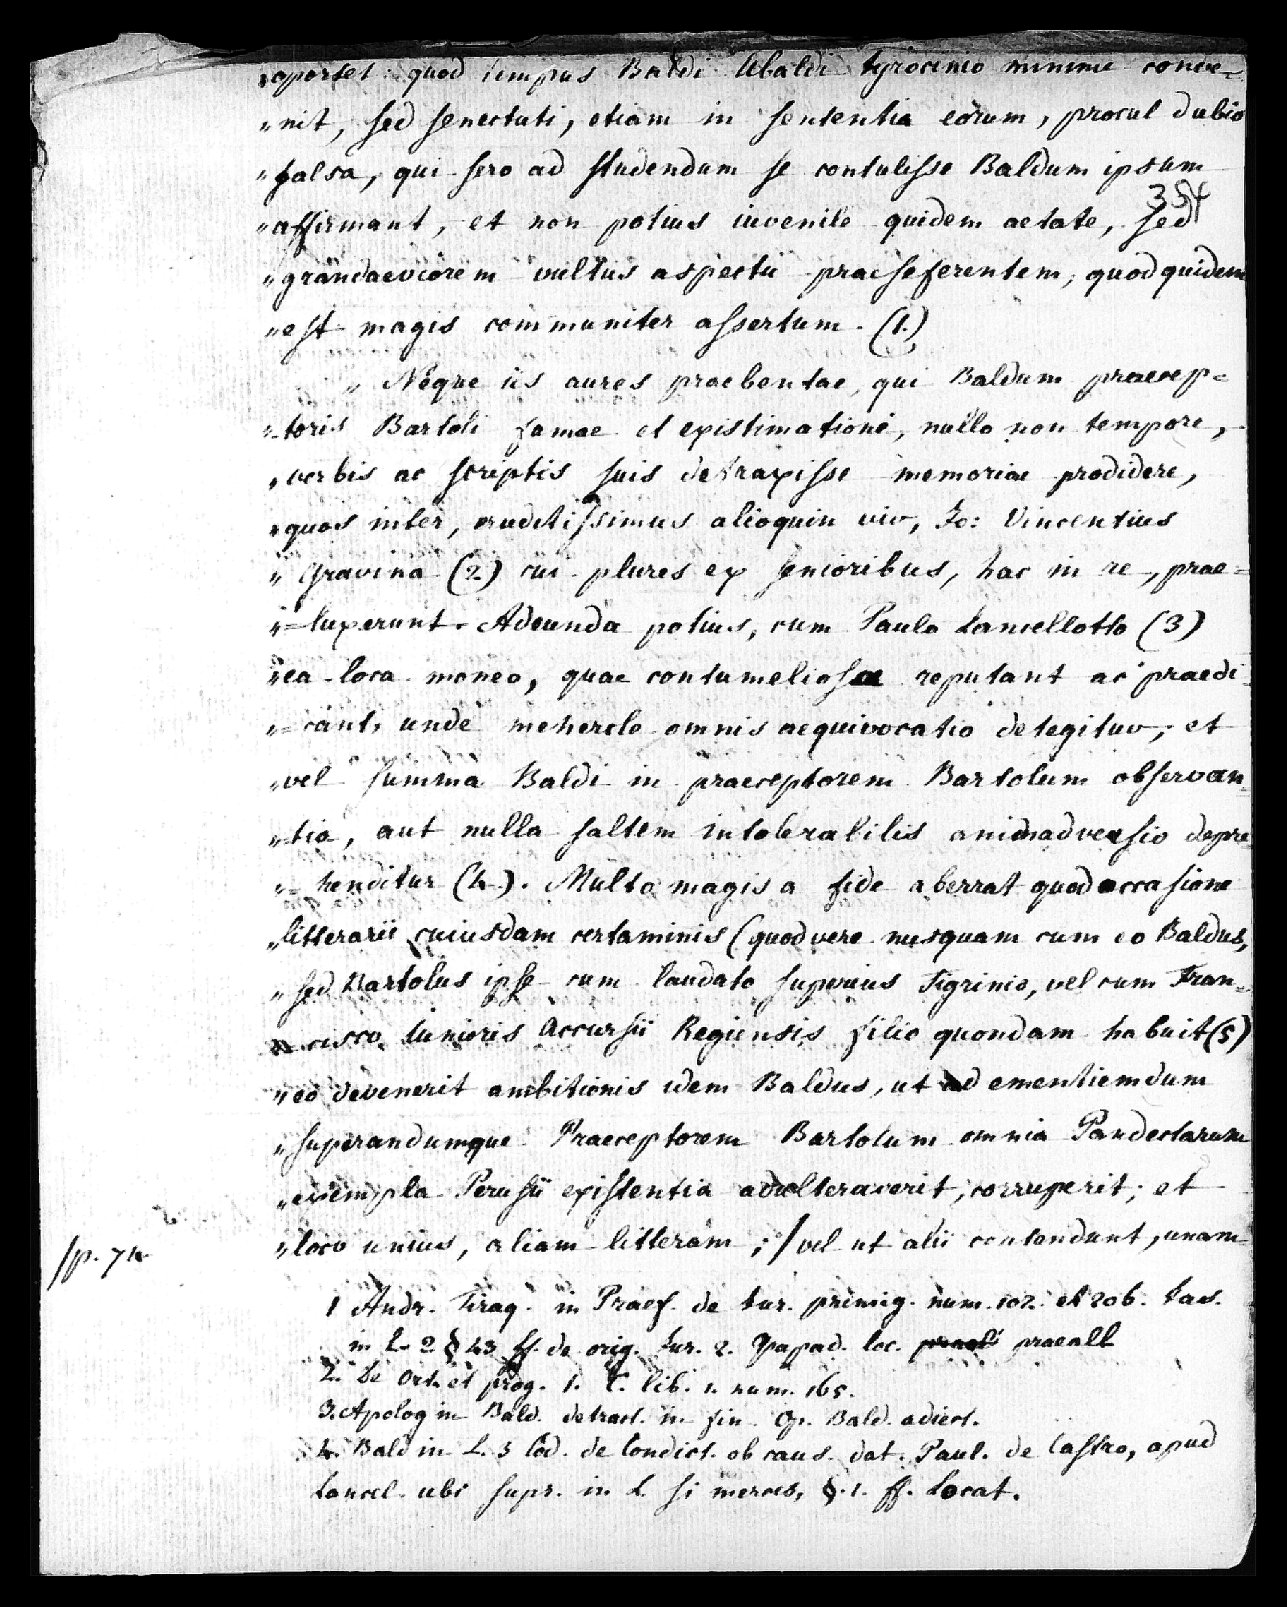 „oportet quod tempus Baldi Ubaldi tyrocinio minime conve=
„nit, sed senectuti, etiam in sententia eorum, procul dubio
„falsa, qui sero ad studendum se contulisse Baldum ipsum
354
„affirmant, et non potius iuvenile quidem aetate, sed
„grandaeviorem vultus aspectu praeseferentem, quod quidem
„est magis communiter assertum. (1.)
„ Neque iis aures praebentae, qui Baldum praecep=
„toris Bartoli famae et existimationi, nullo non tempore,
„verbis ac scriptis suis detraxisse memoriae prodidere,
„quos inter, eruditissimus alioquin vir, Jo: Vincentius
„Gravina (2) cui plures ex senioribus, hac in re, prae=
„=luxerunt. Adeunda potius, cum Paulo Lancellotto (3)
„ea loca moneo, quae contumeliosa reputant ac praedi=
„=cant, unde mehercle omnis aequivocatio detegitur; et
„vel summa Baldi in praeceptorem Bartolum observan=
„tia, aut nulla saltem intolerabilis animadversio depre
„=henditur (4). Multo magis a fide aberrat quod occasione
„litterarii cuiusdam certaminis (quod vere nusquam cum eo Baldus,
„sed Bartolus ipse cum laudato superius Tigrinio, vel cum Fran=
„cisco Iunioris Accursii Regiensis filio quondam habuit (5)
„eo devenerit ambitionis idem Baldus, ut ad ementiemdum
„superandumque Praeceptorem Bartolum omnia Pandectarum
„exempla Perusii existentia adulteraverit, corruperit; et
„loco unius, aliam litteram; / vel ut alii contendunt, unam
/p. 74
1 Andr. Tiraq. in Praef. de Iur. primig. num. 102. et 206. Ias.
in L. 2 § 43 ff. de orig. Iur. 2. Papad. loc. praeall
2. De Ort. et prog. I. C. lib. 1. num. 165.
3. Apolog in Bald. detract. in fin. Op. Bald. adiect.
4. Bald in L. 3 Cod. de Condict. ob caus. dat. Paul. de Castro, apud
Lancel. ubi supr. in L. si merces, §. 1. ff. Locat.